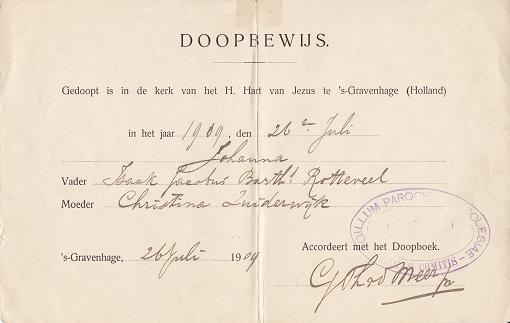 DOOPBEWIJS.
Gedoopt is in de kerk van het H. Hart van Jezus te 's-Gravenhage (Holland)
in het jaar 1909, den 26e Juli
Johanna
Vader Isaak Jacobus Barths. Rotteveel
Moeder Christina Zuiderwijk
SIGILLUM PAROCH ECCLESIAE
COMITIS
Accordeert met het Doopboek.
's-Gravenhage, 26 Juli 1909